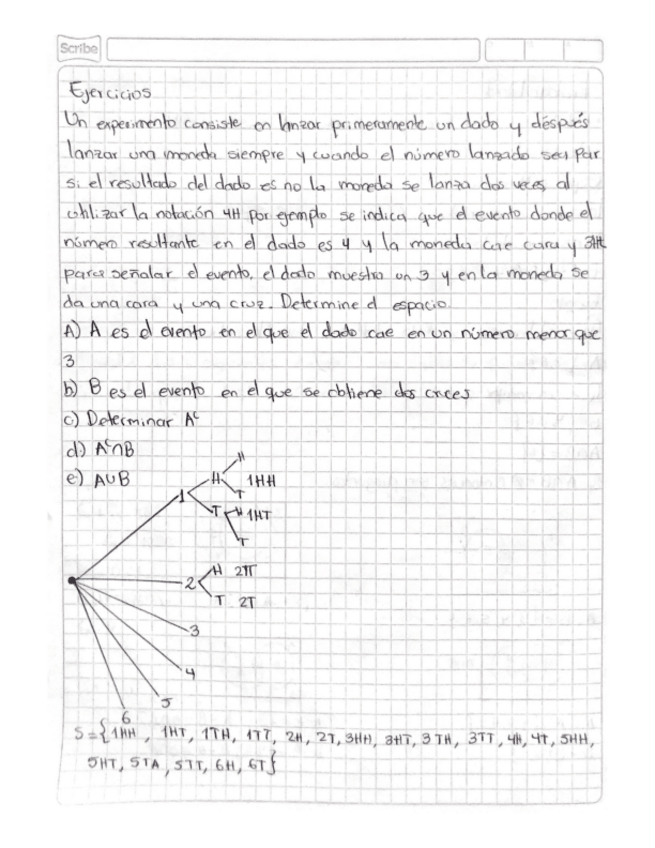 Scribe
Ejercicios
Un experimento consiste en lanzar primeramente un dado y después
lanzar una moneda siempre y cuando el número lanzado sea par
si el resultado del dado es no la moneda se lanza dos veces, al
utilizar la notación 4H por ejemplo se indica que el evento donde el
número resultante en el dado es 4 y la moneda cae cara y 3Ht
para señalar el evento, el dado muestra un 3 y en la moneda se
da una cara y una cruz. Determine el espacio.
A) A es el evento en el que el dado cae en un número menor que
3
b) B es el evento en el que se obtiene dos cruces
c) Determinar Aᶜ
d) Aᶜ∩B
e) A∪B
H
H 1HH
T
1
T H 1HT
T
2 H 2TT
T 2T
3
4
5
6
S={1HH, 1HT, 1TH, 1TT, 2H, 2T, 3HH, 3HT, 3TH, 3TT, 4H, 4T, 5HH,
5HT, 5TA, 5TT, 6H, 6T}